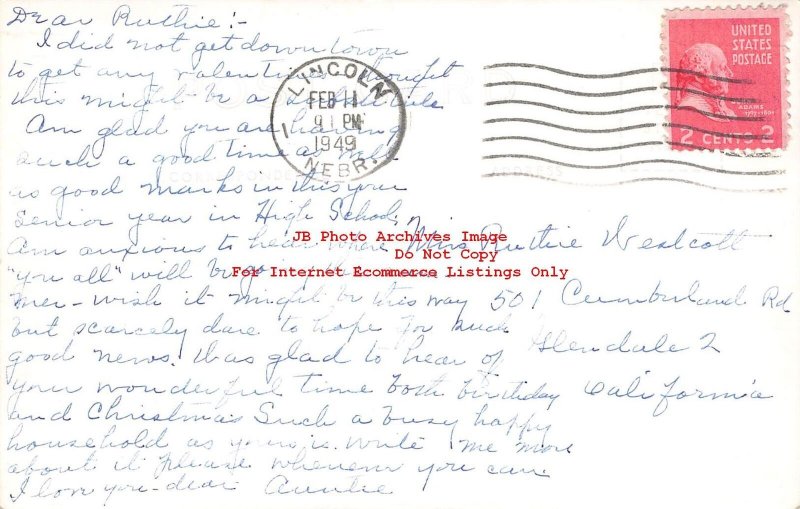 Dear Ruthie:-
I did not get down town
to get any valentines thought
this might be a
Am glad you are having
such a good time as well
as good marks in this your
senior year in High School.
Am anxious to hear where
"you all" will be going this
mer - wish it might be this way
but scarcely dare to hope for such
good news. Was glad to hear of
your wonderful time both birthday
and Christmas Such a busy happy
household as yours is. Write me more
about it please whenever you can
I love you - dear Auntie
LINCOLN
FEB 11
9 PM
1949
NEBR.
UNITED
STATES
POSTAGE
ADAMS
2 CENTS 2
Miss Ruthie Westcott
501 Cumberland Rd
Glendale 2
California
JB Photo Archives Image
Do Not Copy
For Internet Ecommerce Listings Only